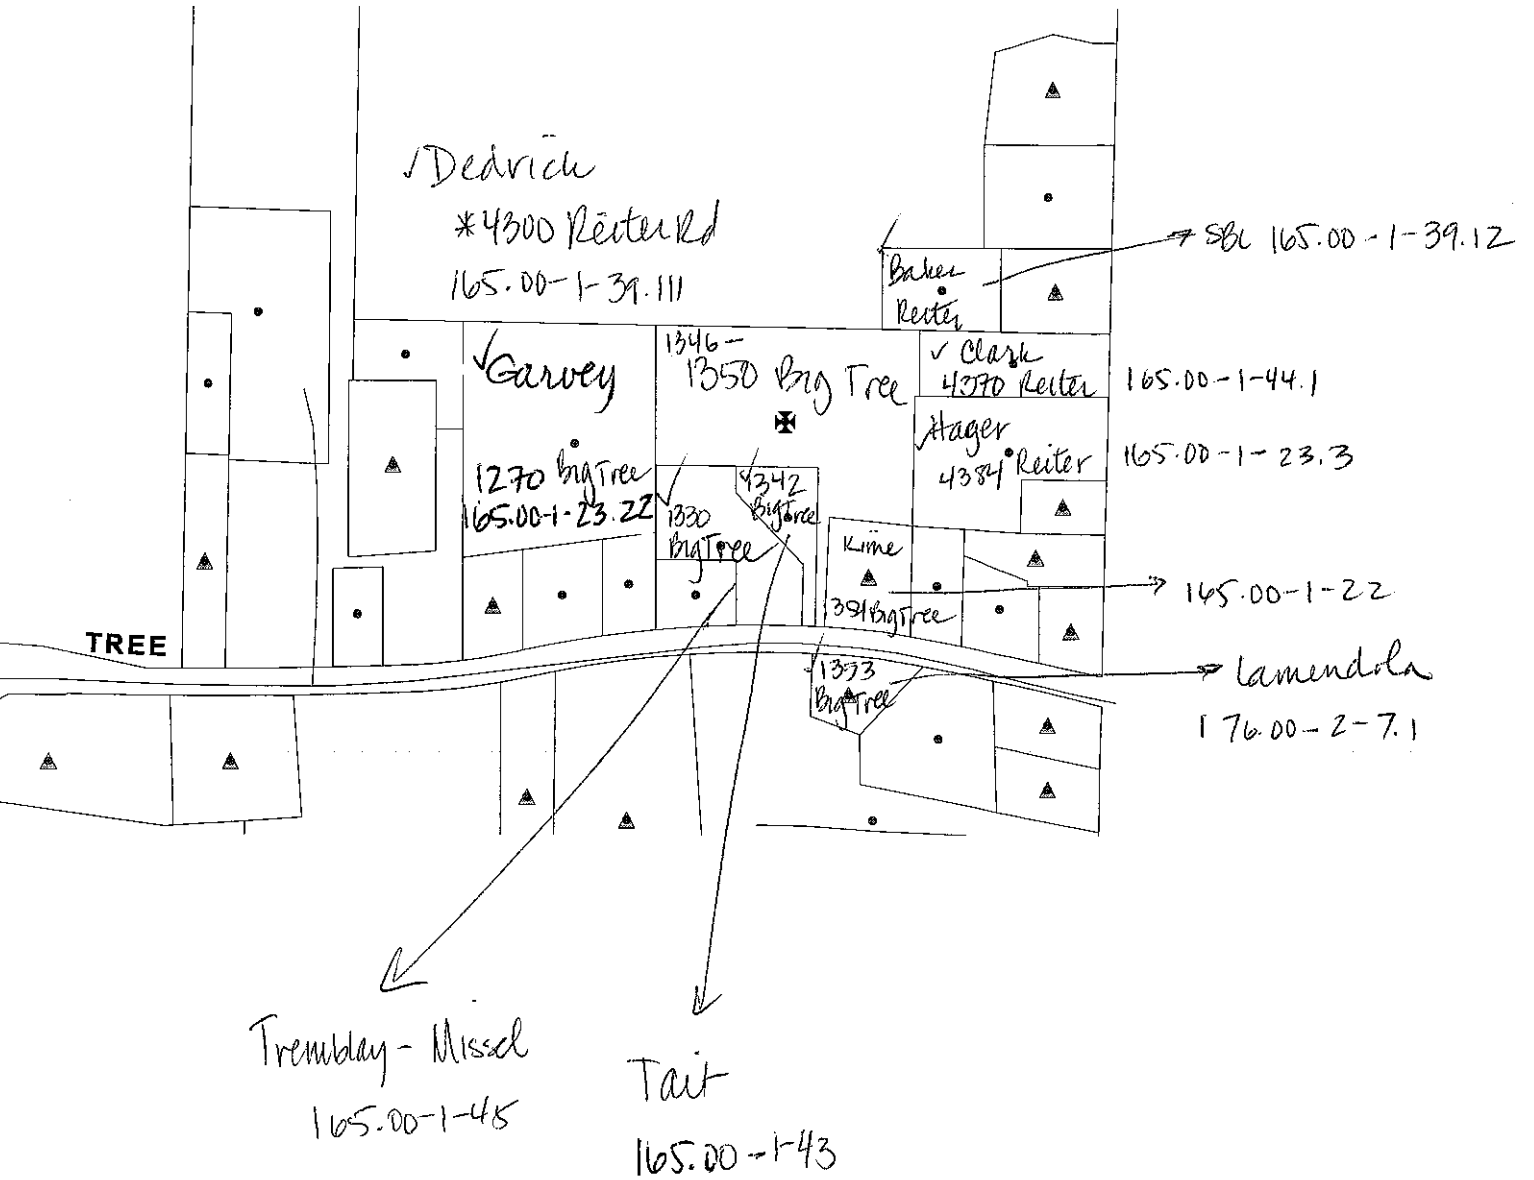 ✓Dedrich
*4300 Reiter Rd
165.00-1-39.111
Baker
Reiter
SBL 165.00-1-39.12
✓Garvey
1270 Big Tree
165.00-1-23.22
1346-
1350 Big Tree
✓ Clark
4370 Reiter
165.00-1-44.1
✓Hager
4384 Reiter
165.00-1-23.3
1330
Big Tree
✓1342
Big Tree
Kime
Big Tree
165.00-1-22
TREE
Big Tree
Lamendola
176.00-2-7.1
Tremblay-Missel
165.00-1-45
Tait
165.00-1-43